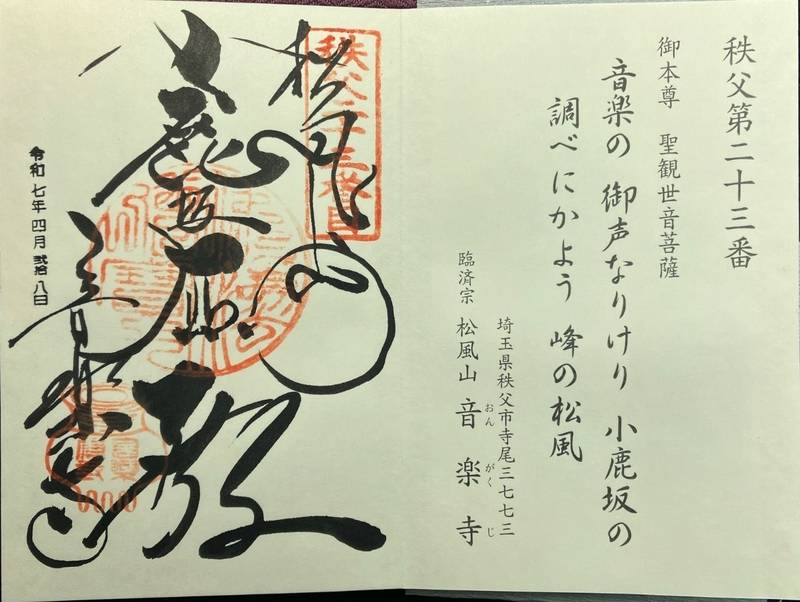 秩父第二十三番
御本尊　聖観世音菩薩
音楽の 御声なりけり 小鹿坂の
調べにかよう 峰の松風
埼玉県秩父市寺尾三七七三
臨済宗 松風山 音楽寺
おん がく じ
松風山
小鹿坂
音楽寺
令和 七年 四月 弐拾 八日